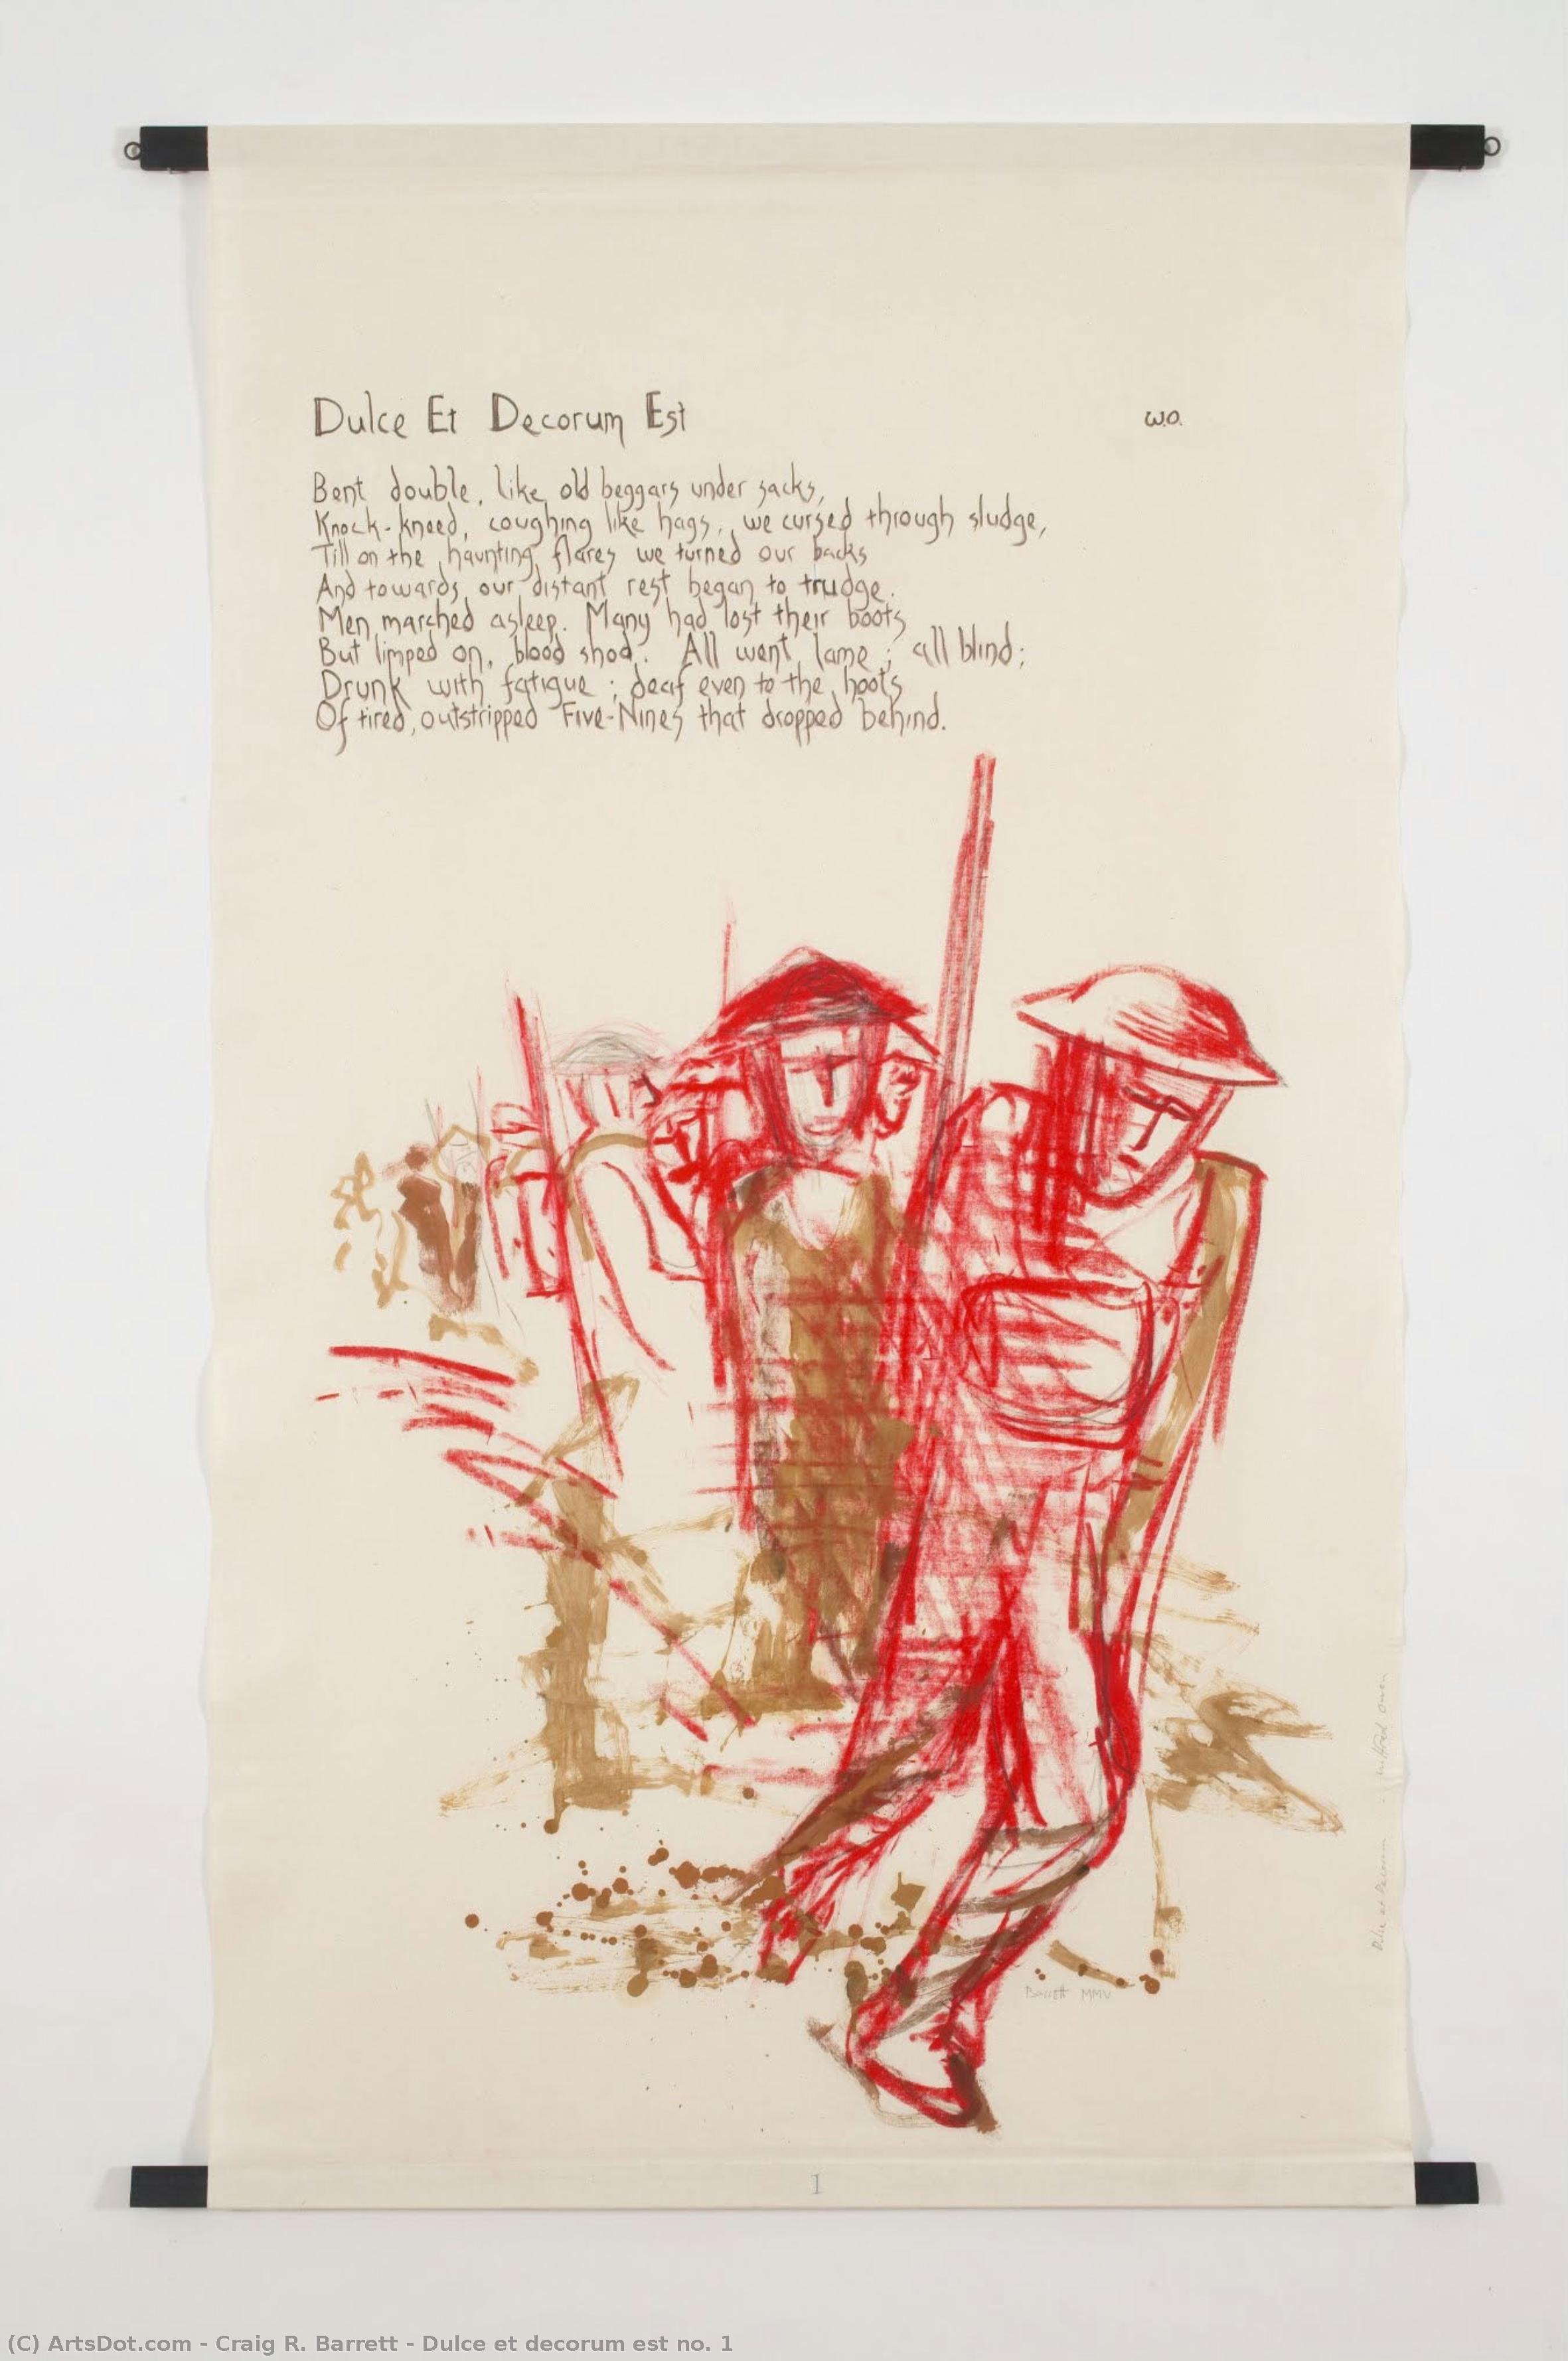 Dulce Et Decorum Est
W.O.
Bent double, like old beggars under sacks,
Knock-kneed, coughing like hags, we cursed through sludge,
Till on the haunting flares we turned our backs
And towards our distant rest began to trudge.
Men marched asleep. Many had lost their boots
But limped on, blood shod. All went lame; all blind;
Drunk with fatigue; deaf even to the hoots
Of tired, outstripped Five-Nines that dropped behind.
Dulce et Decorum - Wilfred Owen
Barrett MMV
1
(C) ArtsDot.com - Craig R. Barrett - Dulce et decorum est no. 1